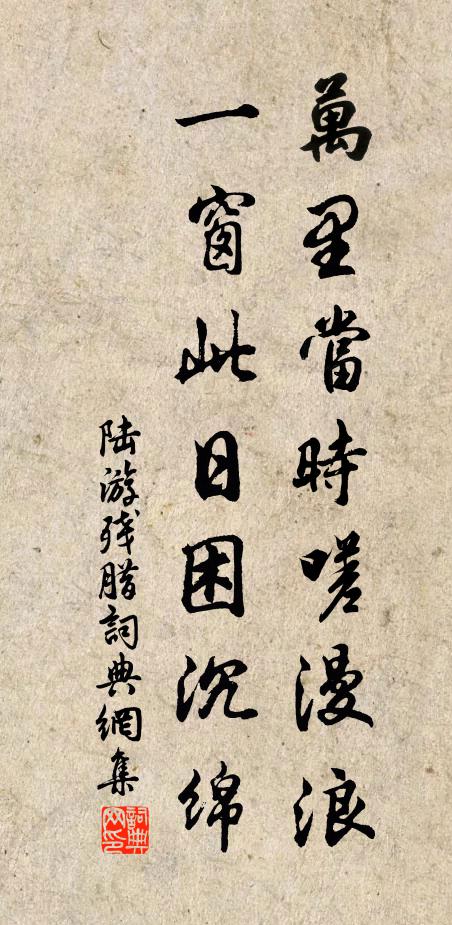 萬里當時嗟漫浪
一窗此日困沉綿
陆游残腊詞典網集
詞典網印